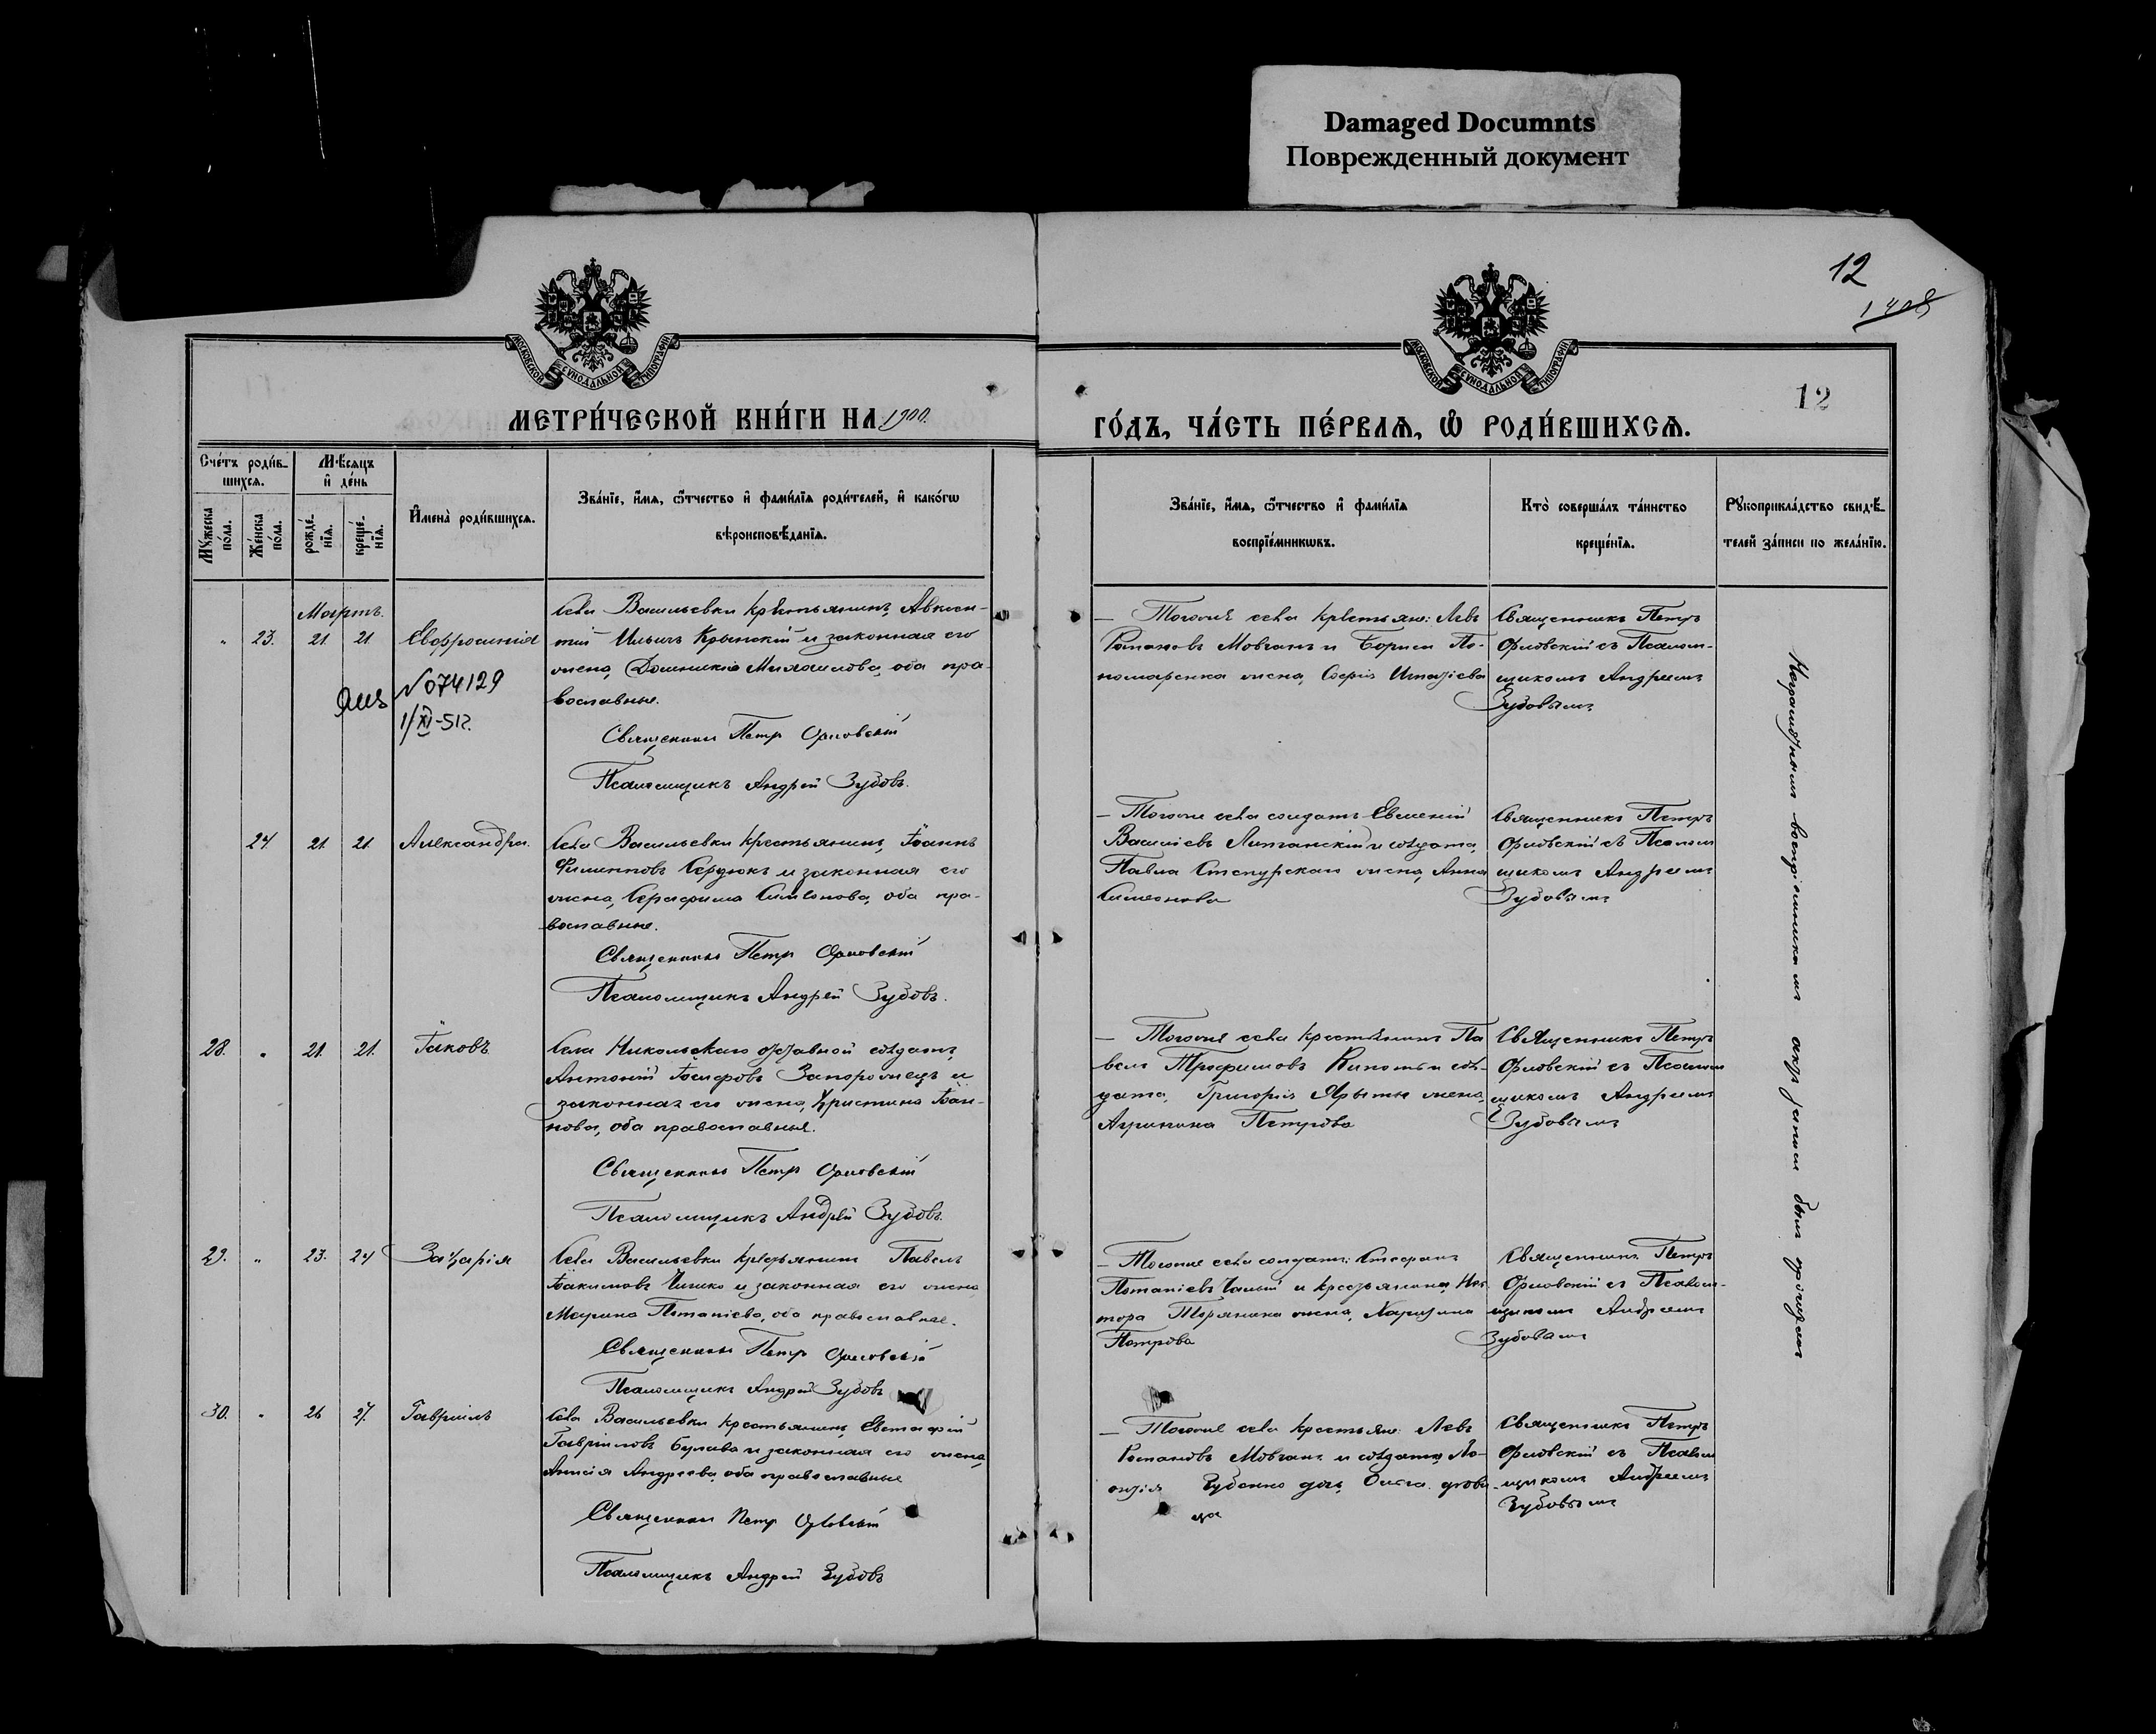 Damaged Documnts
Поврежденный документ
12
1408
12
МОСКОВСКОЙ СѴНОДАЛЬНОЙ ТИПОГРАФІИ
МОСКОВСКОЙ СѴНОДАЛЬНОЙ ТИПОГРАФІИ
МЕТРИ́ЧЕСКОЙ КНИ́ГИ НА 1900.
ГО́ДЪ, ЧА́СТЬ ПЕ́РВАѦ, Ѡ҆ РОДИ́ВШИХСѦ.
Сче́тъ роди́в-
шихсѧ.
Мꙋ́жеска по́ла.
Же́нска по́ла.
Мѣ́сѧцъ
и҆ де́нь
рожде́-
нїѧ.
креще́-
нїѧ.
И҆мена̀ роди́вшихсѧ.
Зва́нїе, и҆́мѧ, ѻ҆́тчество и҆ фами́лїѧ роди́телей, и҆ како́гѡ
вѣроисповѣ́данїѧ.
Зва́нїе, и҆́мѧ, ѻ҆́тчество и҆ фами́лїѧ
воспрїе́мникѡвъ.
Кто̀ соверша́лъ та́инство
креще́нїѧ.
Рꙋкоприкла́дство свидѣ́-
телей за́писи по жела́нїю.
Мартъ.
" 23. 21 21 Евфросинія
N 074129
1/XI-51г.
Села Васильевки крестьянинъ, Авксен-
тій Ильичъ Крынскій и законная его
жена, Домникія Михаилова, оба пра-
вославные.
Священникъ Петр Орловскій
Псаломщикъ Андрей Зубовъ.
— Тогоже села крестьян: Левъ
Романовъ Мовчанъ и Бориса По-
номаренка жена, Софія Игнатіева
Священникъ Петръ
Орловскій съ Псалом-
щикомъ Андреемъ
Зубовымъ
24 21. 21. Александра.
Села Васильевки крестьянинъ, Іоаннъ
Филипповъ Сердюкъ и законная его
жена, Серафима Симеонова, оба пра-
вославные.
Священникъ Петр Орловскій
Псаломщикъ Андрей Зубовъ.
— Тогоже села солдатъ Евгеній
Василіевъ и солдата,
Павла жена, Анна
Симеонова
Священникъ Петръ
Орловскій съ Псалом
щикомъ Андреемъ
Зубовымъ
28. " 21. 21. Іаковъ
Села Никольскаго отставной солдатъ,
Антоній Іосифовъ Запорожецъ и
законная его жена, Христина Іоан-
нова, оба православные.
Священникъ Петр Орловскій
Псаломщикъ Андрей Зубовъ.
— Тогоже села крестьянинъ Па
велъ Трофимовъ и сол-
дата, Григорія жена,
Агрипина Петрова
Священникъ Петръ
Орловскій съ Псалом
щикомъ Андреемъ
Зубовымъ
29. " 23. 24 Захарія
Села Васильевки крестьянинъ Павелъ
Іоакимовъ и законная его жена
Марина Потапіева, оба православные.
Священникъ Петр Орловскій
Псаломщикъ Андрей Зубовъ
— Тогоже села солдатъ: Стефанъ
Потапіевъ и крестьянина, Нес-
тора жена,
Петрова
Священникъ Петръ
Орловскій съ Псалом-
щикомъ Андреемъ
Зубовымъ
30. " 26 27. Гавріилъ
Села Васильевки крестьянинъ, Евстафій
Гавріиловъ Булава и законная его жена,
Анисія Андреева, оба православные
Священникъ Петр Орловскій
Псаломщикъ Андрей Зубовъ
— Тогоже села крестьян: Левъ
Романовъ Мовчанъ и солдата,
Зубенко дочь, Ольга
Священникъ Петръ
Орловскій съ Псалом
щикомъ Андреемъ
Зубовымъ
Неграмотнымъ воспріемникамъ актъ записи былъ прочитанъ